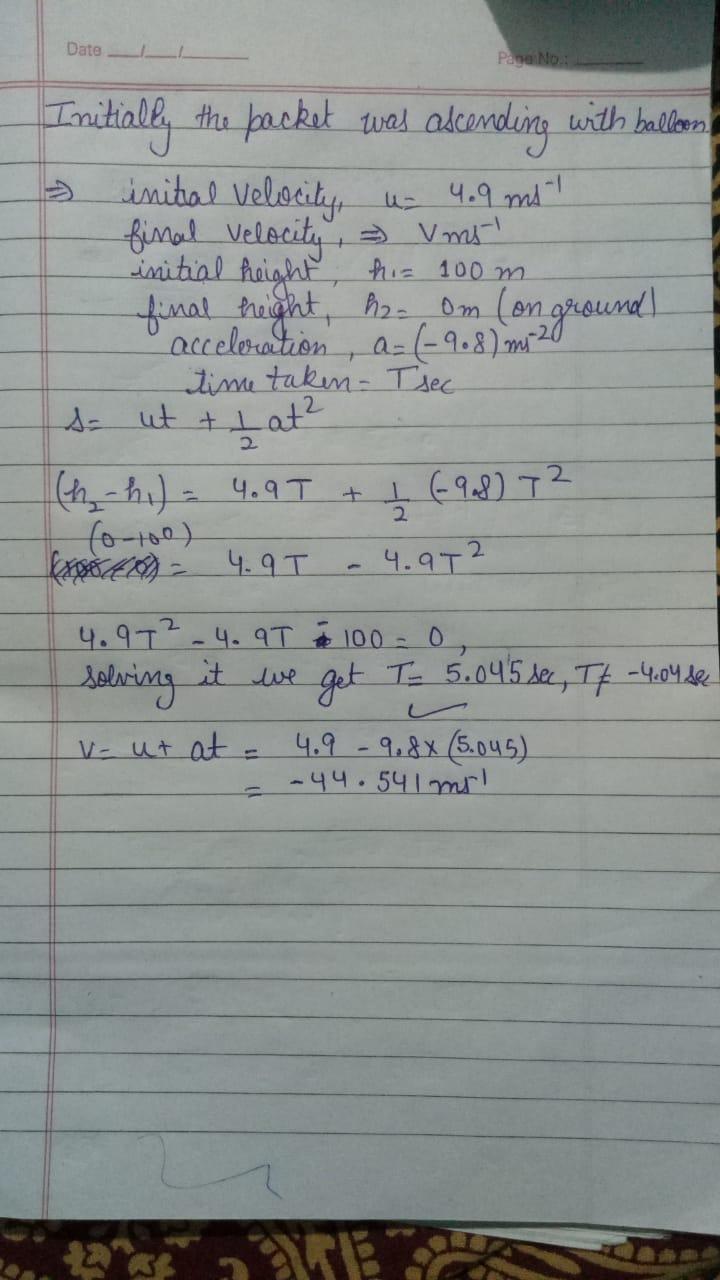 Date __/__/____
Page No.: ______
Initially the packet was ascending with balloon.
⇒ initial velocity, u = 4.9 ms⁻¹
final velocity, ⇒ V ms⁻¹
initial height, h₁ = 100 m
final height, h₂ = 0m (on ground)
acceleration, a = (-9.8) ms⁻²
time taken = T sec
s = ut + 1/2 at²
(h₂-h₁) = 4.9T + 1/2 (-9.8) T²
(0-100)
= 4.9T - 4.9T²
4.9T² - 4.9T - 100 = 0,
solving it we get T = 5.045 sec, T ≠ -4.04 sec
V = u + at = 4.9 - 9.8 x (5.045)
= -44.541 ms⁻¹